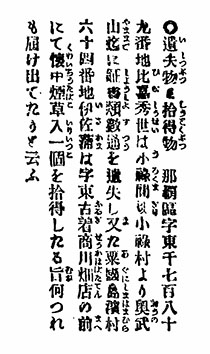 ◎遺失物と拾得物　那覇區字東千七百八十
九番地比嘉秀世は小祿間切小祿村より奥武
山迄に証書類數通を遺失し又た粟國島濱村
六十四番地伊佐蒲は字東古着商川畑店の前
にて懷中煙草入一個を拾得したる旨何づれ
も届け出でたりと云ふ